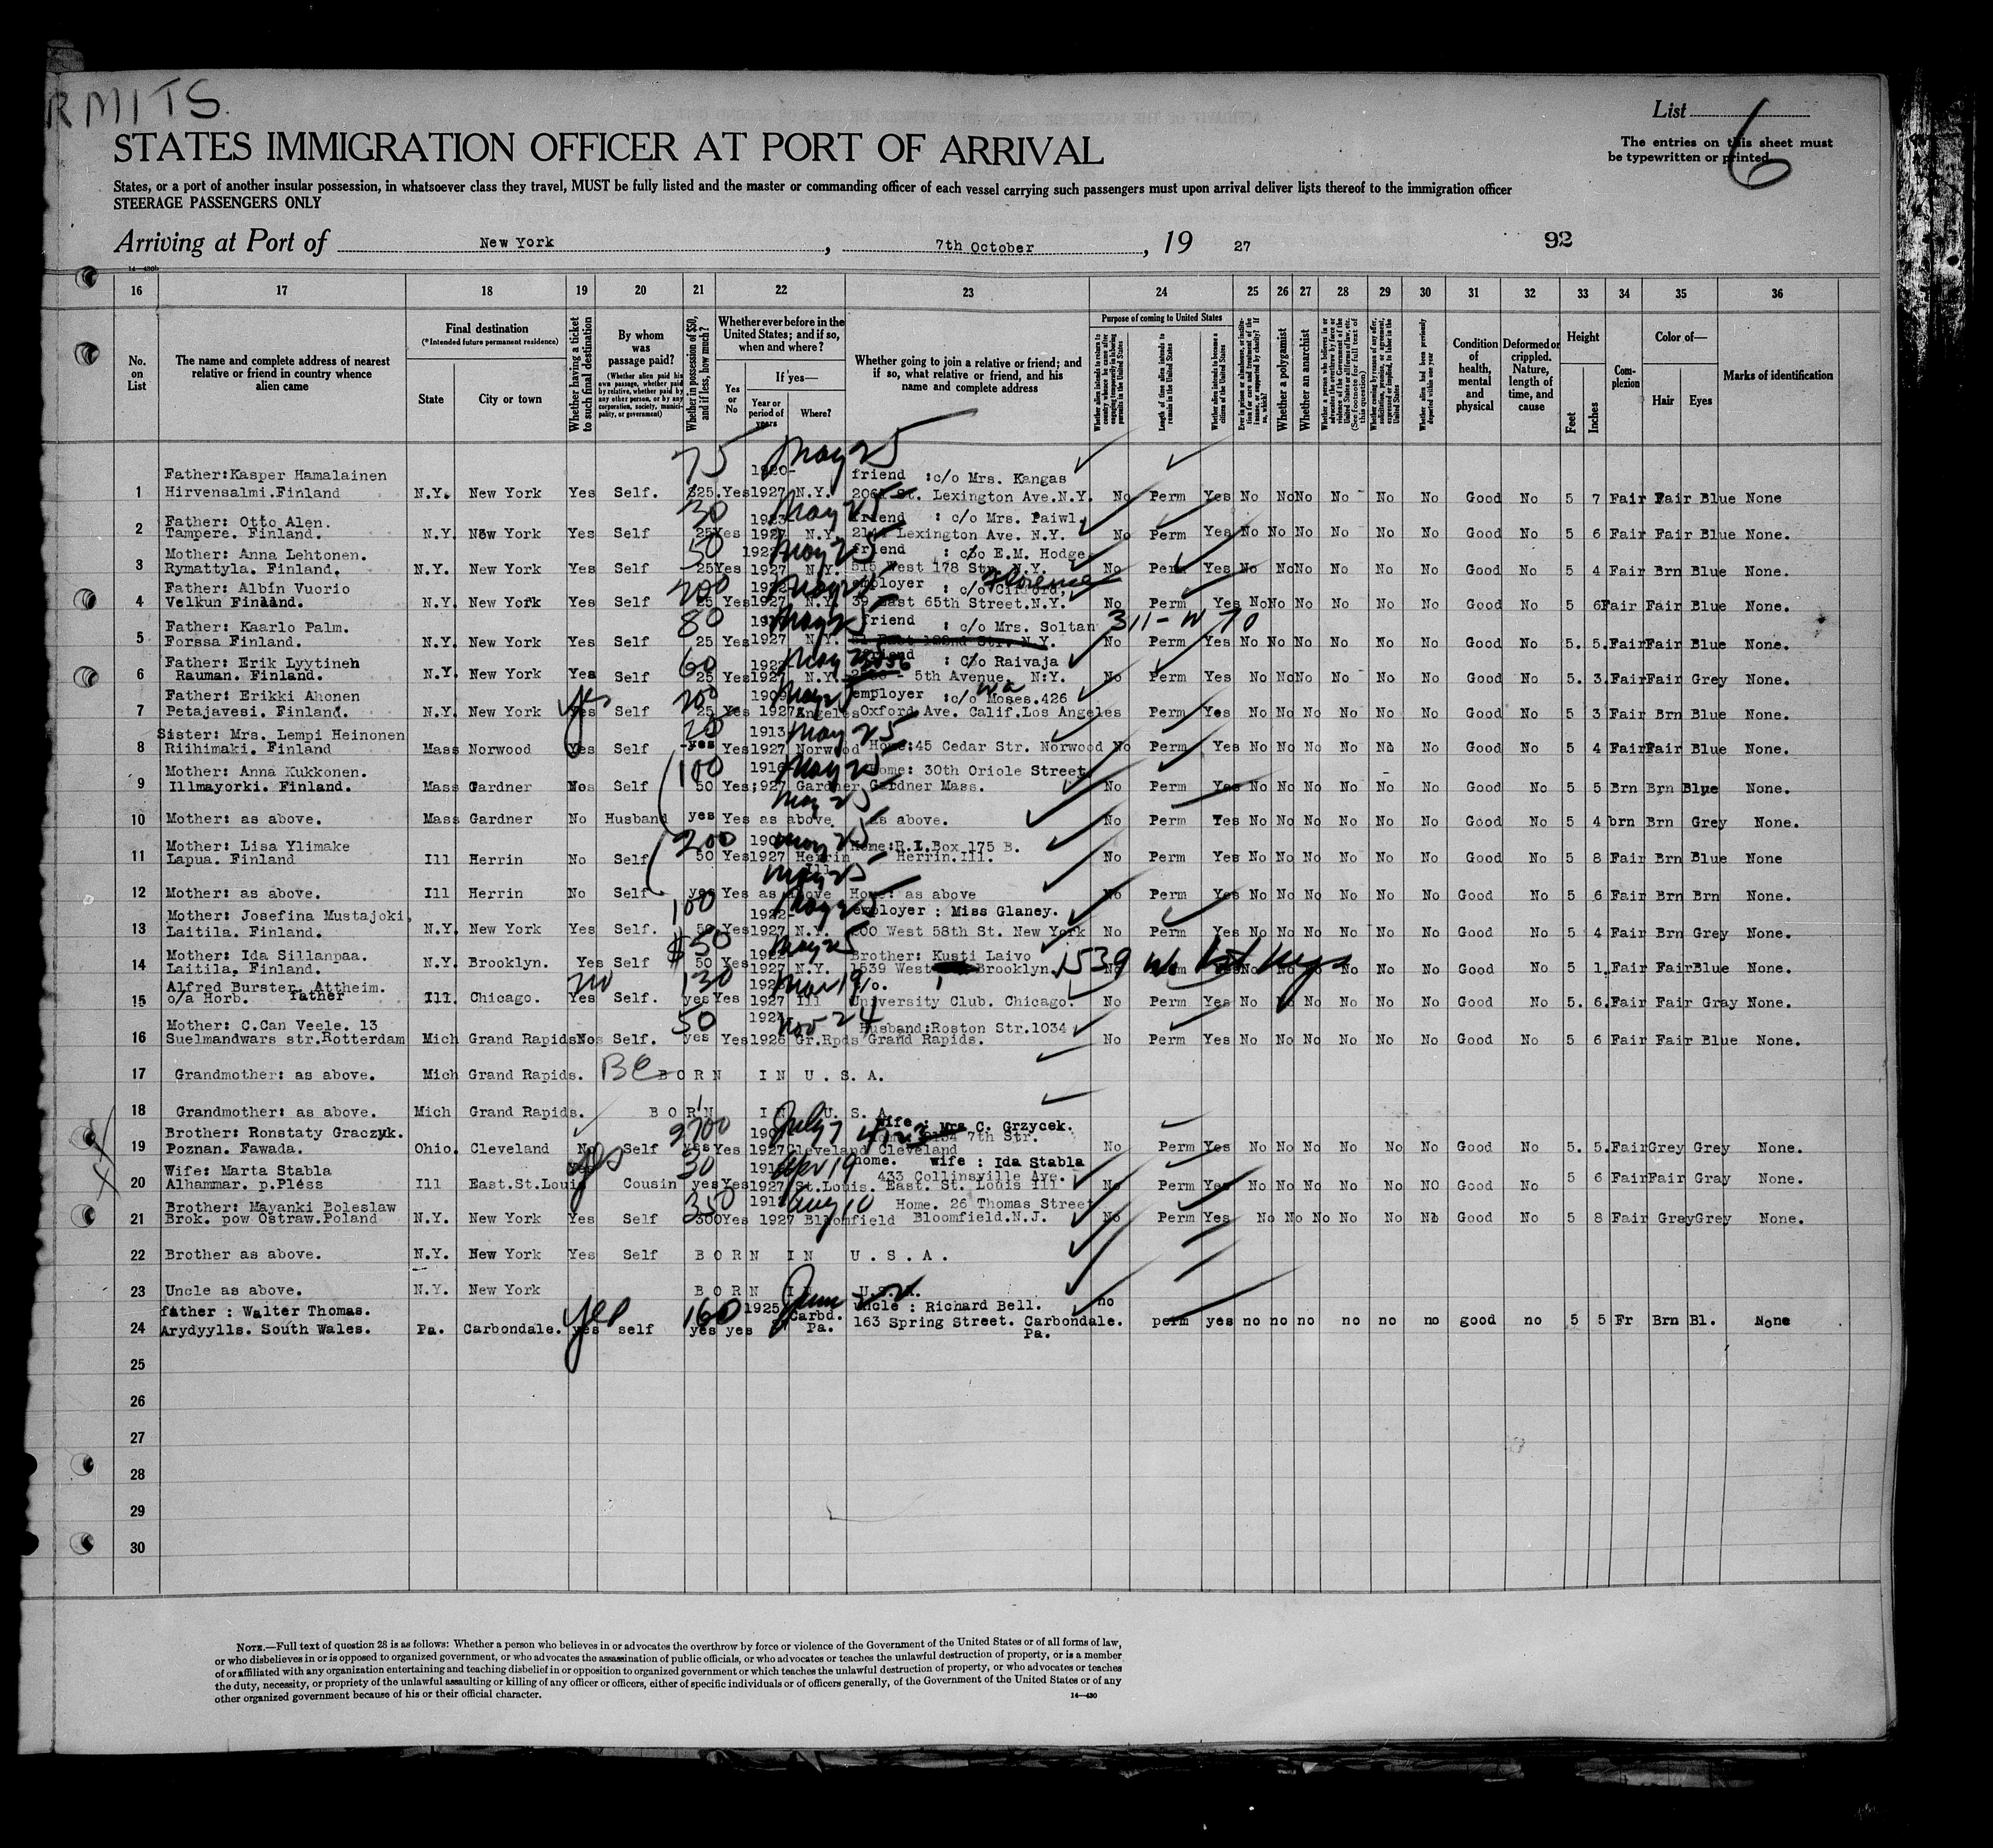 RMITS.
List
6
The entries on this sheet must
be typewritten or printed.
STATES IMMIGRATION OFFICER AT PORT OF ARRIVAL
States, or a port of another insular possession, in whatsoever class they travel, MUST be fully listed and the master or commanding officer of each vessel carrying such passengers must upon arrival deliver lists thereof to the immigration officer
STEERAGE PASSENGERS ONLY
Arriving at Port of New York, 7th October, 19 27
92
14—430b
16 17 18 19 20 21 22 23 24 25 26 27 28 29 30 31 32 33 34 35 36
No. on List
The name and complete address of nearest relative or friend in country whence alien came
Final destination
(*Intended future permanent residence)
State
City or town
Whether having a ticket to such final destination
By whom was passage paid?
(Whether alien paid his own passage, whether paid by relative, whether paid by any other person, or by any corporation, society, municipality, or government)
Whether in possession of $50, and if less, how much?
Whether ever before in the United States; and if so, when and where?
Yes or No
If yes—
Year or period of years
Where?
Whether going to join a relative or friend; and if so, what relative or friend, and his name and complete address
Purpose of coming to United States
Length of time alien intends to remain in the United States
Whether alien intends to become a citizen of the United States
Whether a polygamist
Whether an anarchist
Whether alien had been previously deported within one year
Condition of health, mental and physical
Deformed or crippled. Nature, length of time, and cause
Height
Feet
Inches
Complexion
Color of—
Hair
Eyes
Marks of identification
75 May 25
Father:Kasper Hamalainen 1920- friend :c/o Mrs. Kangas
1 Hirvensalmi.Finland N.Y. New York Yes Self. $25. Yes 1927 N.Y. St. Lexington Ave.N.Y. No Perm Yes No No No No No No Good No 5 7 Fair Fair Blue None
30 May 25
Father: Otto Alen. 1923 friend : c/o Mrs. Paiwl.
2 Tampere. Finland. N.Y. New York Yes Self 25 Yes 1927 N.Y. Lexington Ave. N.Y. No Perm Yes No No No No No No Good No 5 6 Fair Fair Blue None.
50 May 25
Mother: Anna Lehtonen. friend : c/o E.M. Hodge
3 Rymattyla. Finland. N.Y. New York Yes Self 25 Yes 1927 N.Y. 515 West 178 Str. N.Y. No Perm Yes No No No No No No Good No 5 4 Fair Brn Blue None.
200 May 25 Florence
Father: Albin Vuorio employer : c/o Clifford,
4 Velkun Finland. N.Y. New York Yes Self 25 Yes 1927 N.Y. 39 East 65th Street.N.Y. No Perm Yes No No No No No No Good No 5 6 Fair Fair Blue None.
80 May 25
Father: Kaarlo Palm. friend : c/o Mrs. Soltan 311-W 70
5 Forssa Finland. N.Y. New York Yes Self 25 Yes 1927 N.Y. No Perm Yes No No No No No No Good No 5. 5. Fair Fair Blue None.
60 May 25
Father: Erik Lyytineh 1922 friend : C/o Raivaja
6 Rauman. Finland. N.Y. New York Yes Self 25 Yes 1927 N.Y. 2056 - 5th Avenue N.Y. No Perm Yes No No No No No No Good No 5. 3. Fair Fair Grey None.
yes 200 May 25
Father: Erikki Ahonen 1909 employer :c/o Moses.426
7 Petajavesi. Finland. N.Y. New York Yes Self 25 Yes 1927 Angeles Oxford Ave. Calif.Los Angeles Perm Yes No No No No No No Good No 5 3 Fair Brn Blue None.
20 May 25
Sister: Mrs. Lempi Heinonen 1913
8 Riihimaki. Finland Mass Norwood Yes Self -yes Yes 1927 Norwood Home:45 Cedar Str. Norwood No Perm Yes No No No No No No Good No 5 4 Fair Fair Blue None.
100 May 25
Mother: Anna Kukkonen. 1916 Home: 30th Oriole Street
9 Illmayorki. Finland. Mass Gardner No Self 50 Yes 1927 Gardner Gardner Mass. No Perm Yes No No No No No No Good No 5 5 Brn Brn Blue None.
May 25
10 Mother: as above. Mass Gardner No Husband yes Yes as above as above. No Perm Yes No No No No No No Good No 5 4 brn Brn Grey None.
200 May 25
Mother: Lisa Ylimake Home:R.I.Box 175 B.
11 Lapua. Finland Ill Herrin No Self 50 Yes 1927 Herrin Herrin.Ill. No Perm Yes No No No No No No Good No 5 8 Fair Brn Blue None
May 25
12 Mother: as above. Ill Herrin No Self yes Yes as above Home: as above No Perm Yes No No No No No No Good No 5 6 Fair Brn Brn None.
100 May 25
Mother: Josefina Mustajoki, 1922- employer : Miss Glaney.
13 Laitila. Finland. N.Y. New York Yes Self. 50 Yes 1927 N.Y. 200 West 58th St. New York No Perm Yes No No No No No No Good No 5 4 Fair Brn Grey None.
$50 May 25
Mother: Ida Sillanpaa. 1922 Brother: Kusti Laivo
14 Laitila, Finland. N.Y. Brooklyn. Yes Self 50 Yes 1927 N.Y. 1539 West Brooklyn. 1539 W Yes No No No No No No Good No 5 1. Fair Fair Blue None.
no 130 Mar 19
Alfred Burster. Attheim. c/o.
15 o/a Horb. father Ill. Chicago. Yes Self. yes Yes 1927 Ill University Club. Chicago. No Perm Yes No No No No No No Good No 5. 6. Fair Fair Gray None.
50 Nov 24
Mother: C.Can Veele. 13 1924 Husband:Roston Str.1034
16 Suelmandwars str.Rotterdam Mich Grand Rapids No Self. yes Yes 1926 Gr.Rpds Grand Rapids. No Perm Yes No No No No No No Good No 5 6 Fair Fair Blue None.
17 Grandmother: as above. Mich Grand Rapids. BORN IN U.S.A.
18 Grandmother: as above. Mich Grand Rapids. BORN IN U.S.A.
July 7 4123
Brother: Ronstaty Graczyk. wife : Mrs C. Grzycek.
19 Poznan. Fawada. Ohio. Cleveland No Self yes Yes 1927 Cleveland 7th Str. Cleveland No Perm Yes No No No No No No Good No 5. 5. Fair Grey Grey None.
yes 30 Apr 19
Wife: Marta Stabla home. wife : Ida Stabla
433 Collinsville Ave.
20 Alhammar. p.Pless Ill East.St.Louis Cousin yes Yes 1927 St.Louis. East. St. Louis Ill No Perm Yes No No No No No NO Good No 5 6 Fair Fair Gray None.
350 Aug 10
Brother: Mayanki Boleslaw Home. 26 Thomas Street
21 Brok. pow Ostraw.Poland N.Y. New York Yes Self 300 Yes 1927 Bloomfield Bloomfield.N.J. No Perm Yes No No No No No No Good No 5 8 Fair Grey Grey None.
22 Brother as above. N.Y. New York Yes Self BORN IN U.S.A.
23 Uncle as above. N.Y. New York BORN IN U.S.A.
yes 160 June
father : Walter Thomas. 1925 Carbd. uncle : Richard Bell. no
24 Arydyylls. South Wales. Pa. Carbondale. yes self yes yes 27 Pa. 163 Spring Street. Carbondale. Pa. perm yes no no no no no no good no 5 5 Fr Brn Bl. None
25
26
27
28
29
30
NOTE.—Full text of question 28 is as follows: Whether a person who believes in or advocates the overthrow by force or violence of the Government of the United States or of all forms of law,
or who disbelieves in or is opposed to organized government, or who advocates the assassination of public officials, or who advocates or teaches the unlawful destruction of property, or is a member
of or affiliated with any organization entertaining and teaching disbelief in or opposition to organized government or which teaches the unlawful destruction of property, or who advocates or teaches
the duty, necessity, or propriety of the unlawful assaulting or killing of any officer or officers, either of specific individuals or of officers generally, of the Government of the United States or of any
other organized government because of his or their official character.
14—430